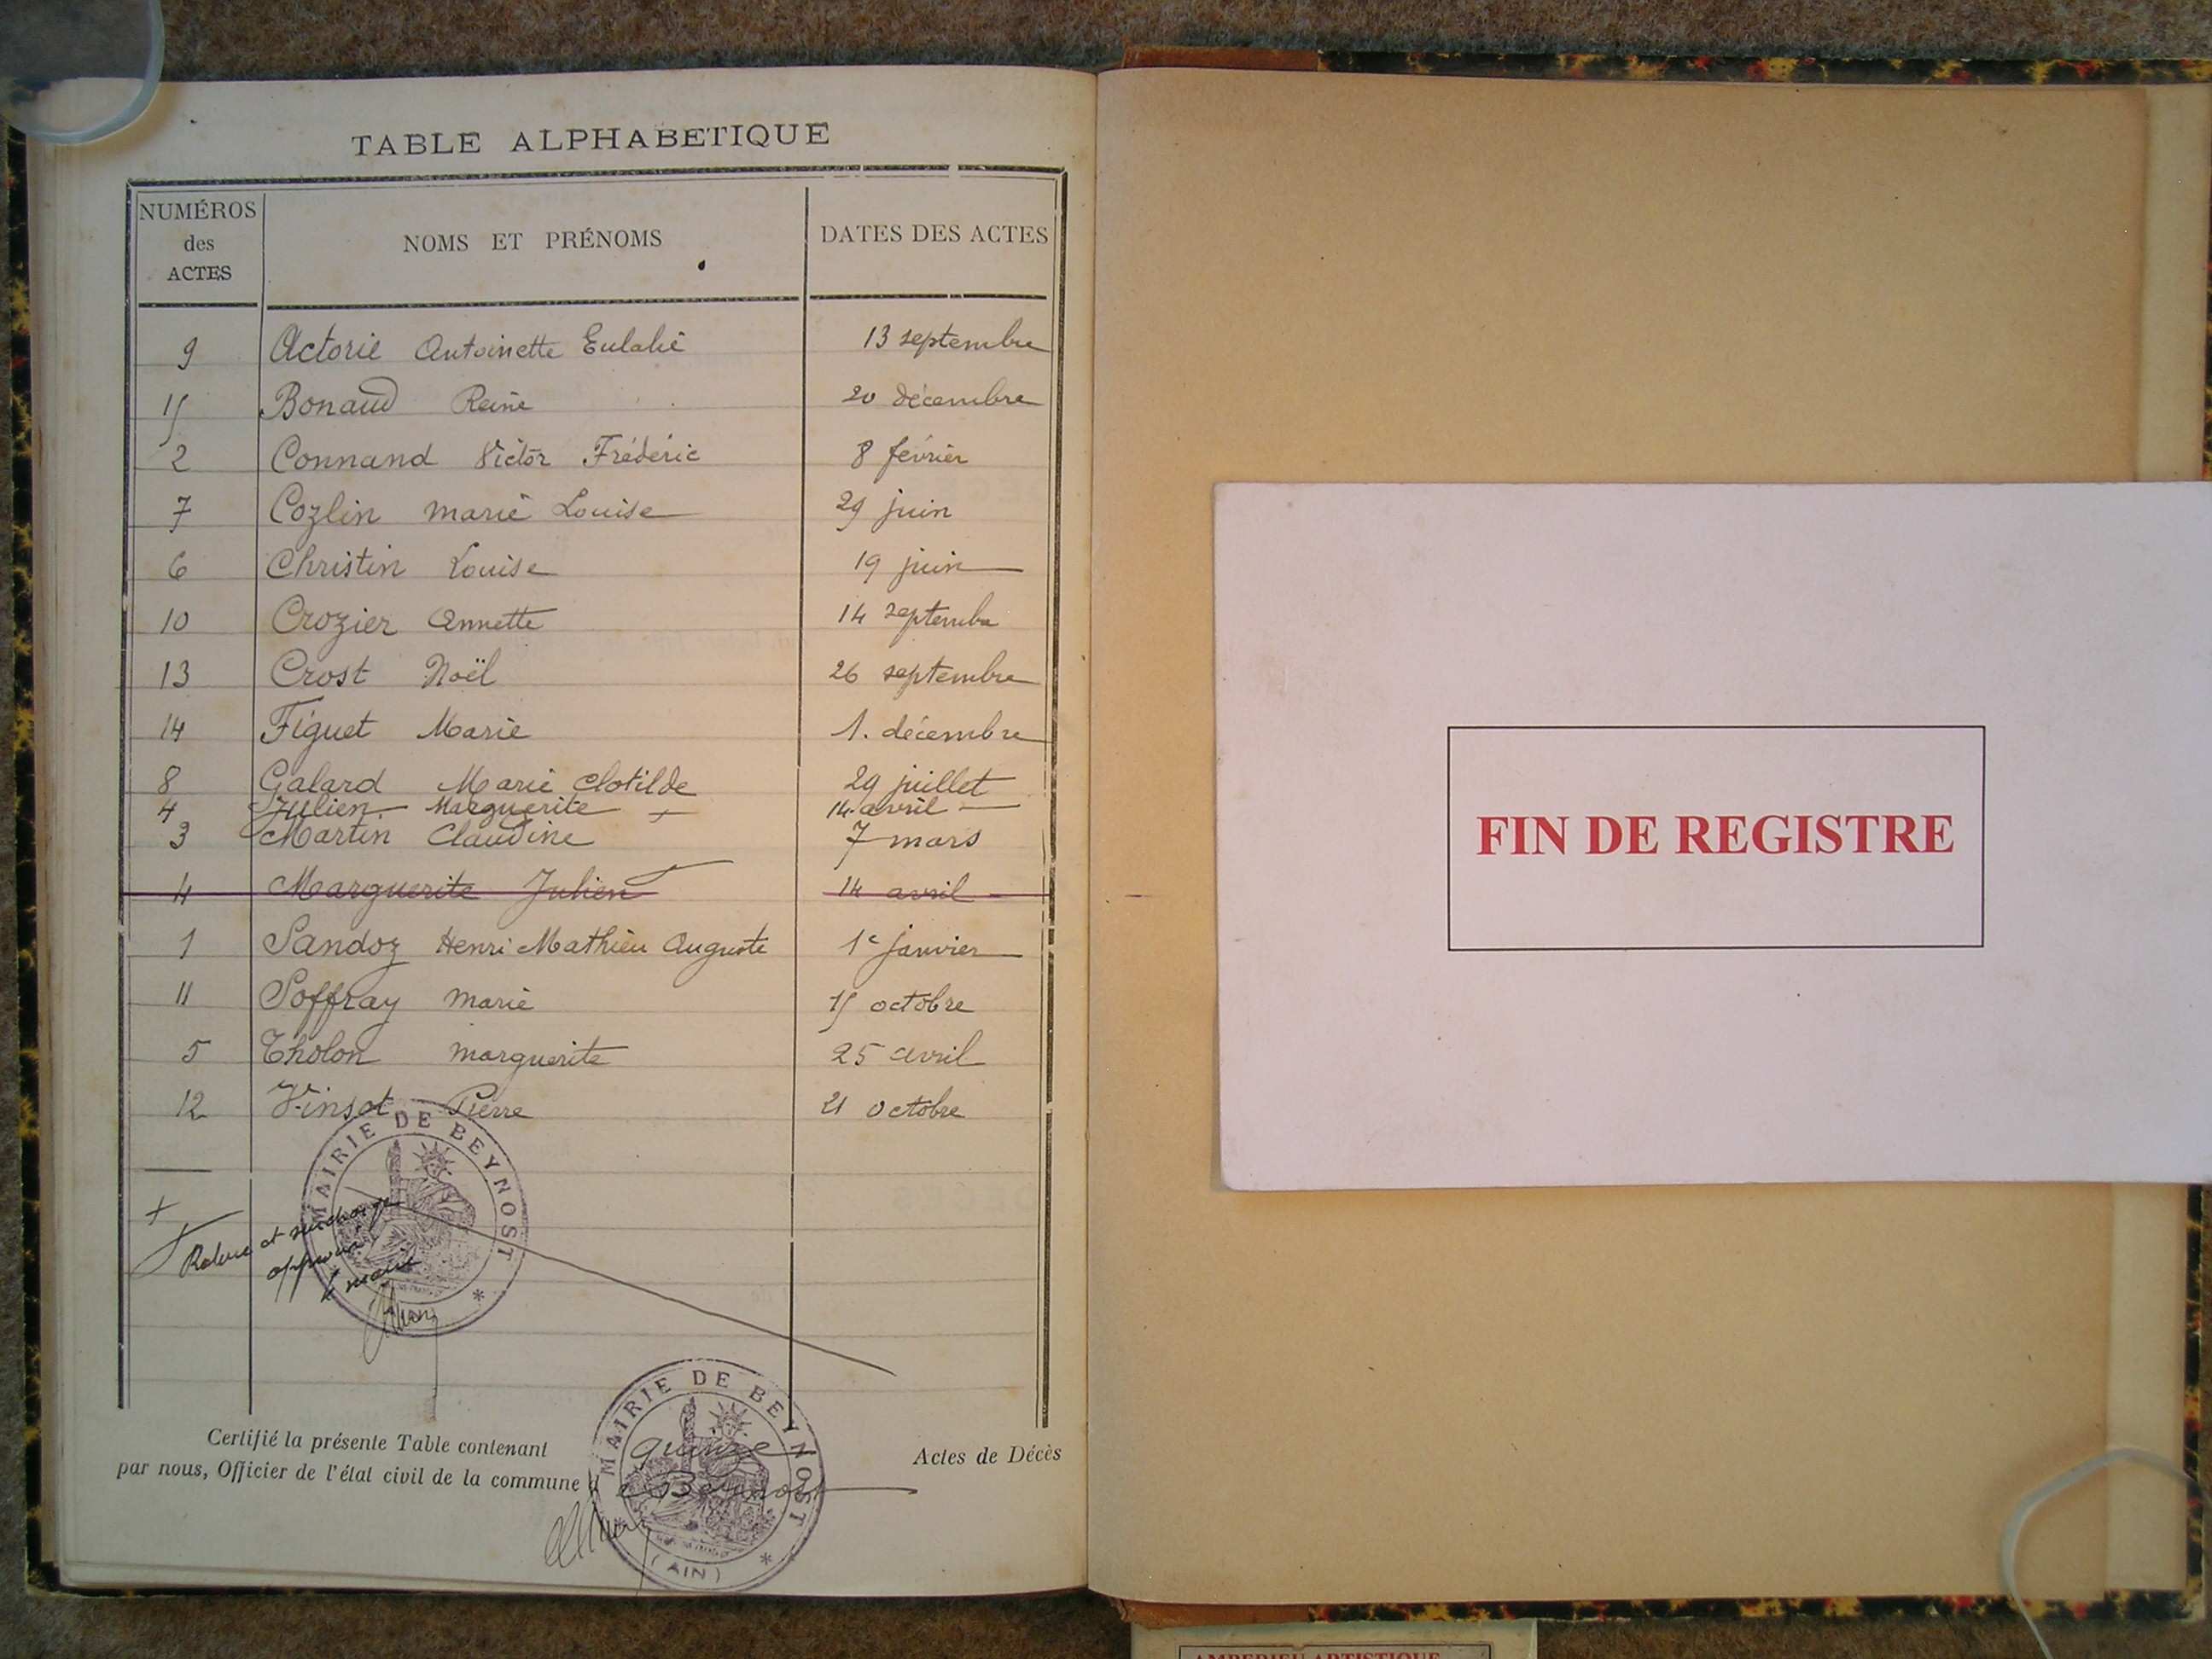 TABLE ALPHABETIQUE
NUMÉROS des ACTES NOMS ET PRÉNOMS DATES DES ACTES
9 Actorie Antoinette Eulalie 13 septembre
15 Bonaud Reine 20 décembre
2 Connand Victor Frédéric 8 février
7 Cozlin Marie Louise 29 juin
6 Christin Louise 19 juin
10 Crozier Annette 14 septembre
13 Crost Noël 26 septembre
14 Figuet Marie 1. décembre
8 Galard Marie Clotilde 29 juillet
4 Julien Marguerite + 14 avril
3 Martin Claudine 7 mars
4 Marguerite Julien 14 avril
1 Sandoz Henri Mathieu Auguste 1e janvier
11 Soffray Marie 15 octobre
5 Tholon Marguerite 25 avril
12 Vinsot Pierre 21 octobre
MAIRIE DE BEYNOST *
+
+ Rature et surcharge
approuvé
le maire
Certifié la présente Table contenant quinze Actes de Décès
par nous, Officier de l'état civil de la commune de Beynost
MAIRIE DE BEYNOST *
(AIN)
FIN DE REGISTRE
AMBERIEU ARTISTIQUE